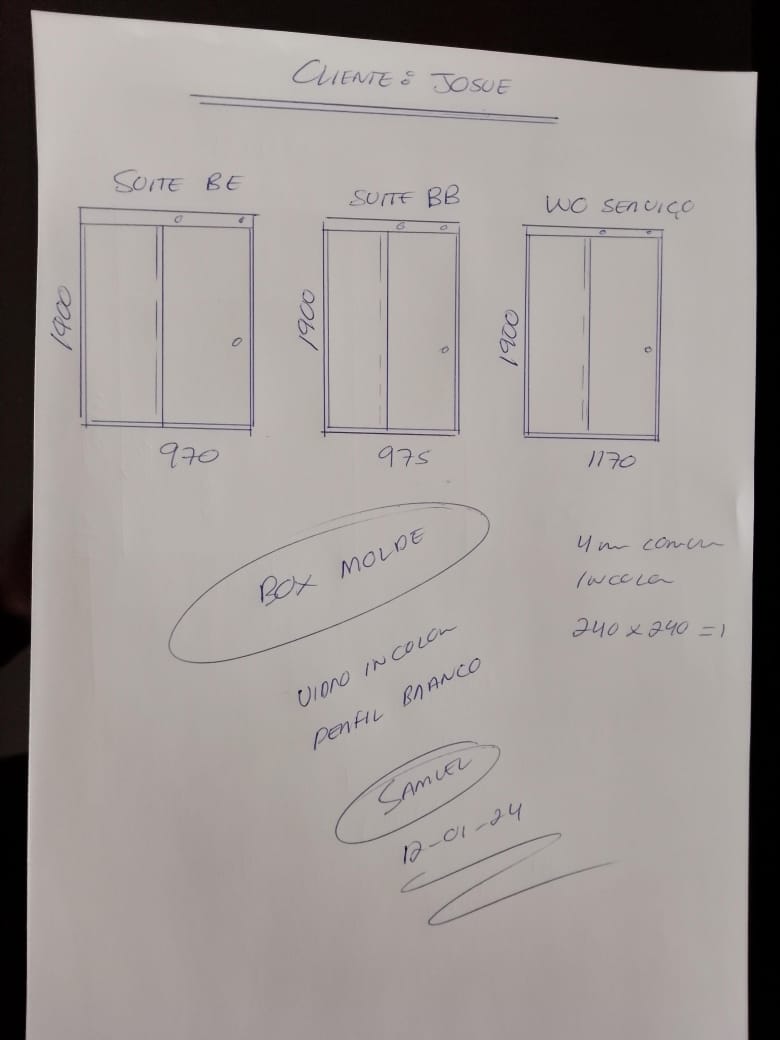 CLIENTE: JOSUE
SUITE BE
1900
970
SUITE BB
1900
975
WC SERVIÇO
1900
1170
BOX MOLDE
VIDRO INCOLOR
PERFIL BRANCO
4 mm COMUM
INCOLOR
240 x 240 = 1
SAMUEL
12-01-24